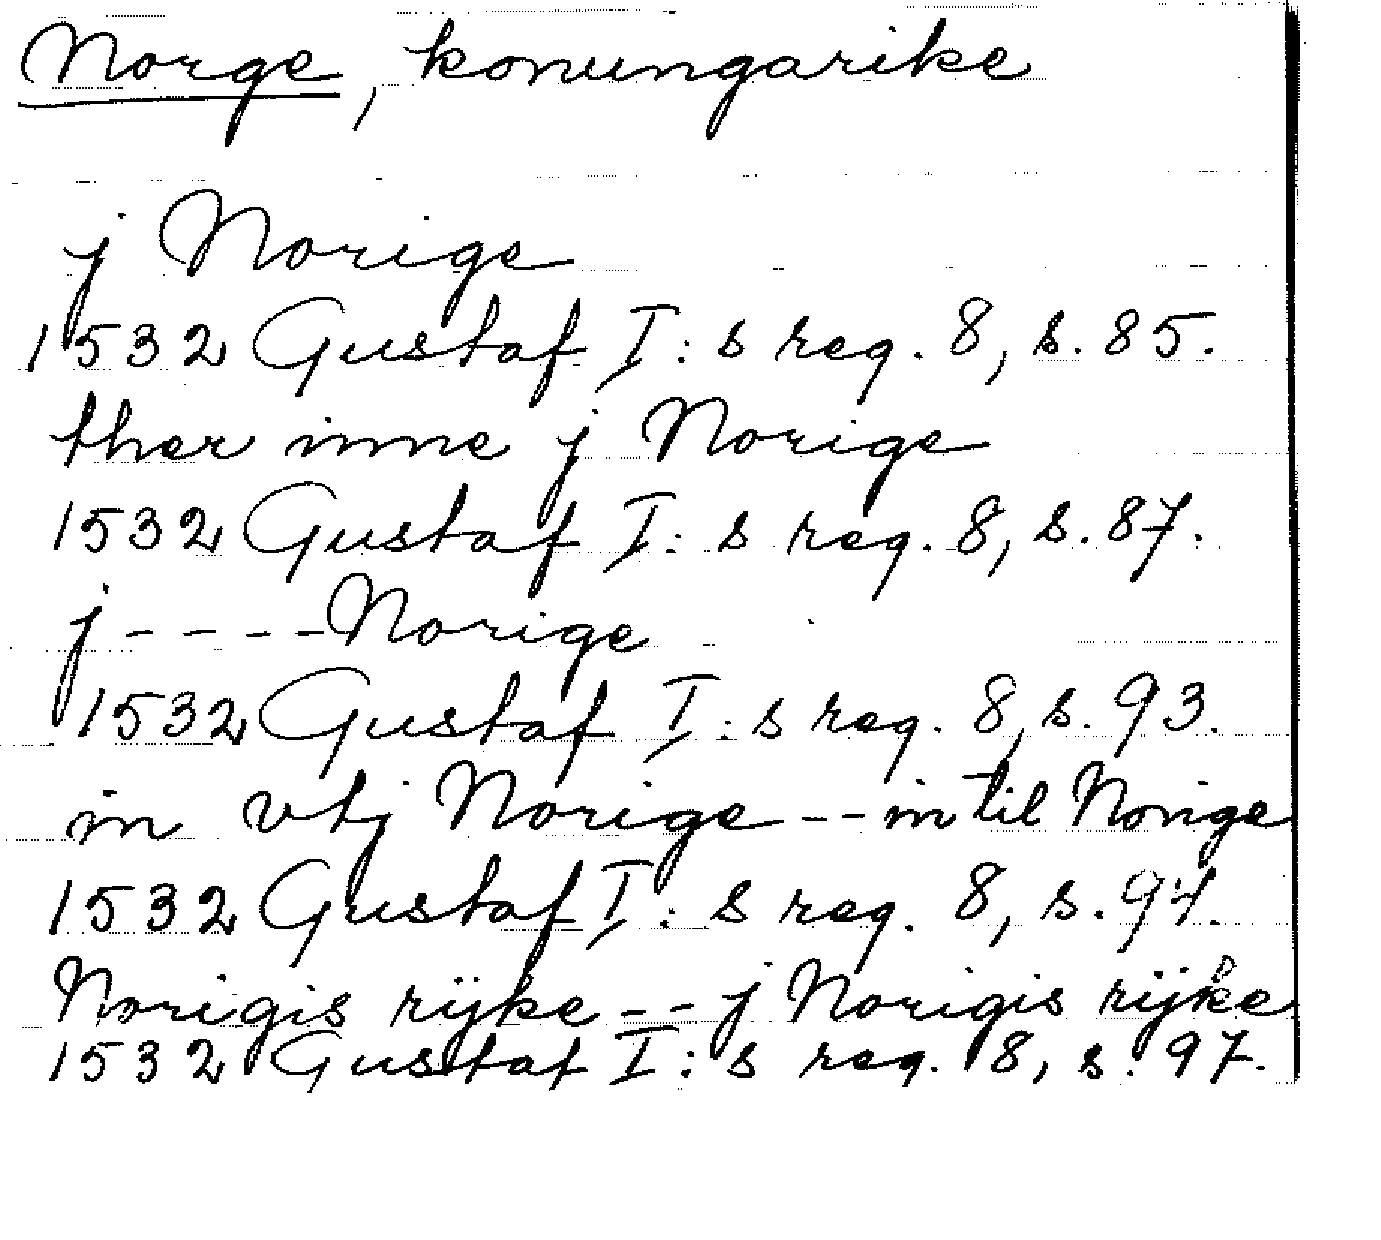 Norge, konungarike
j Norige
1532 Gustaf I:s reg. 8, s. 85.
ther inne j Norige
1532 Gustaf I:s reg. 8, s. 87.
j ---- Norige
1532 Gustaf I:s reg. 8, s. 93.
in vtj Norige -- in til Norige
1532 Gustaf I:s reg. 8, s. 94.
Norigis rijke -- j Norigis rijke
1532 Gustaf I:s reg. 8, s. 97.